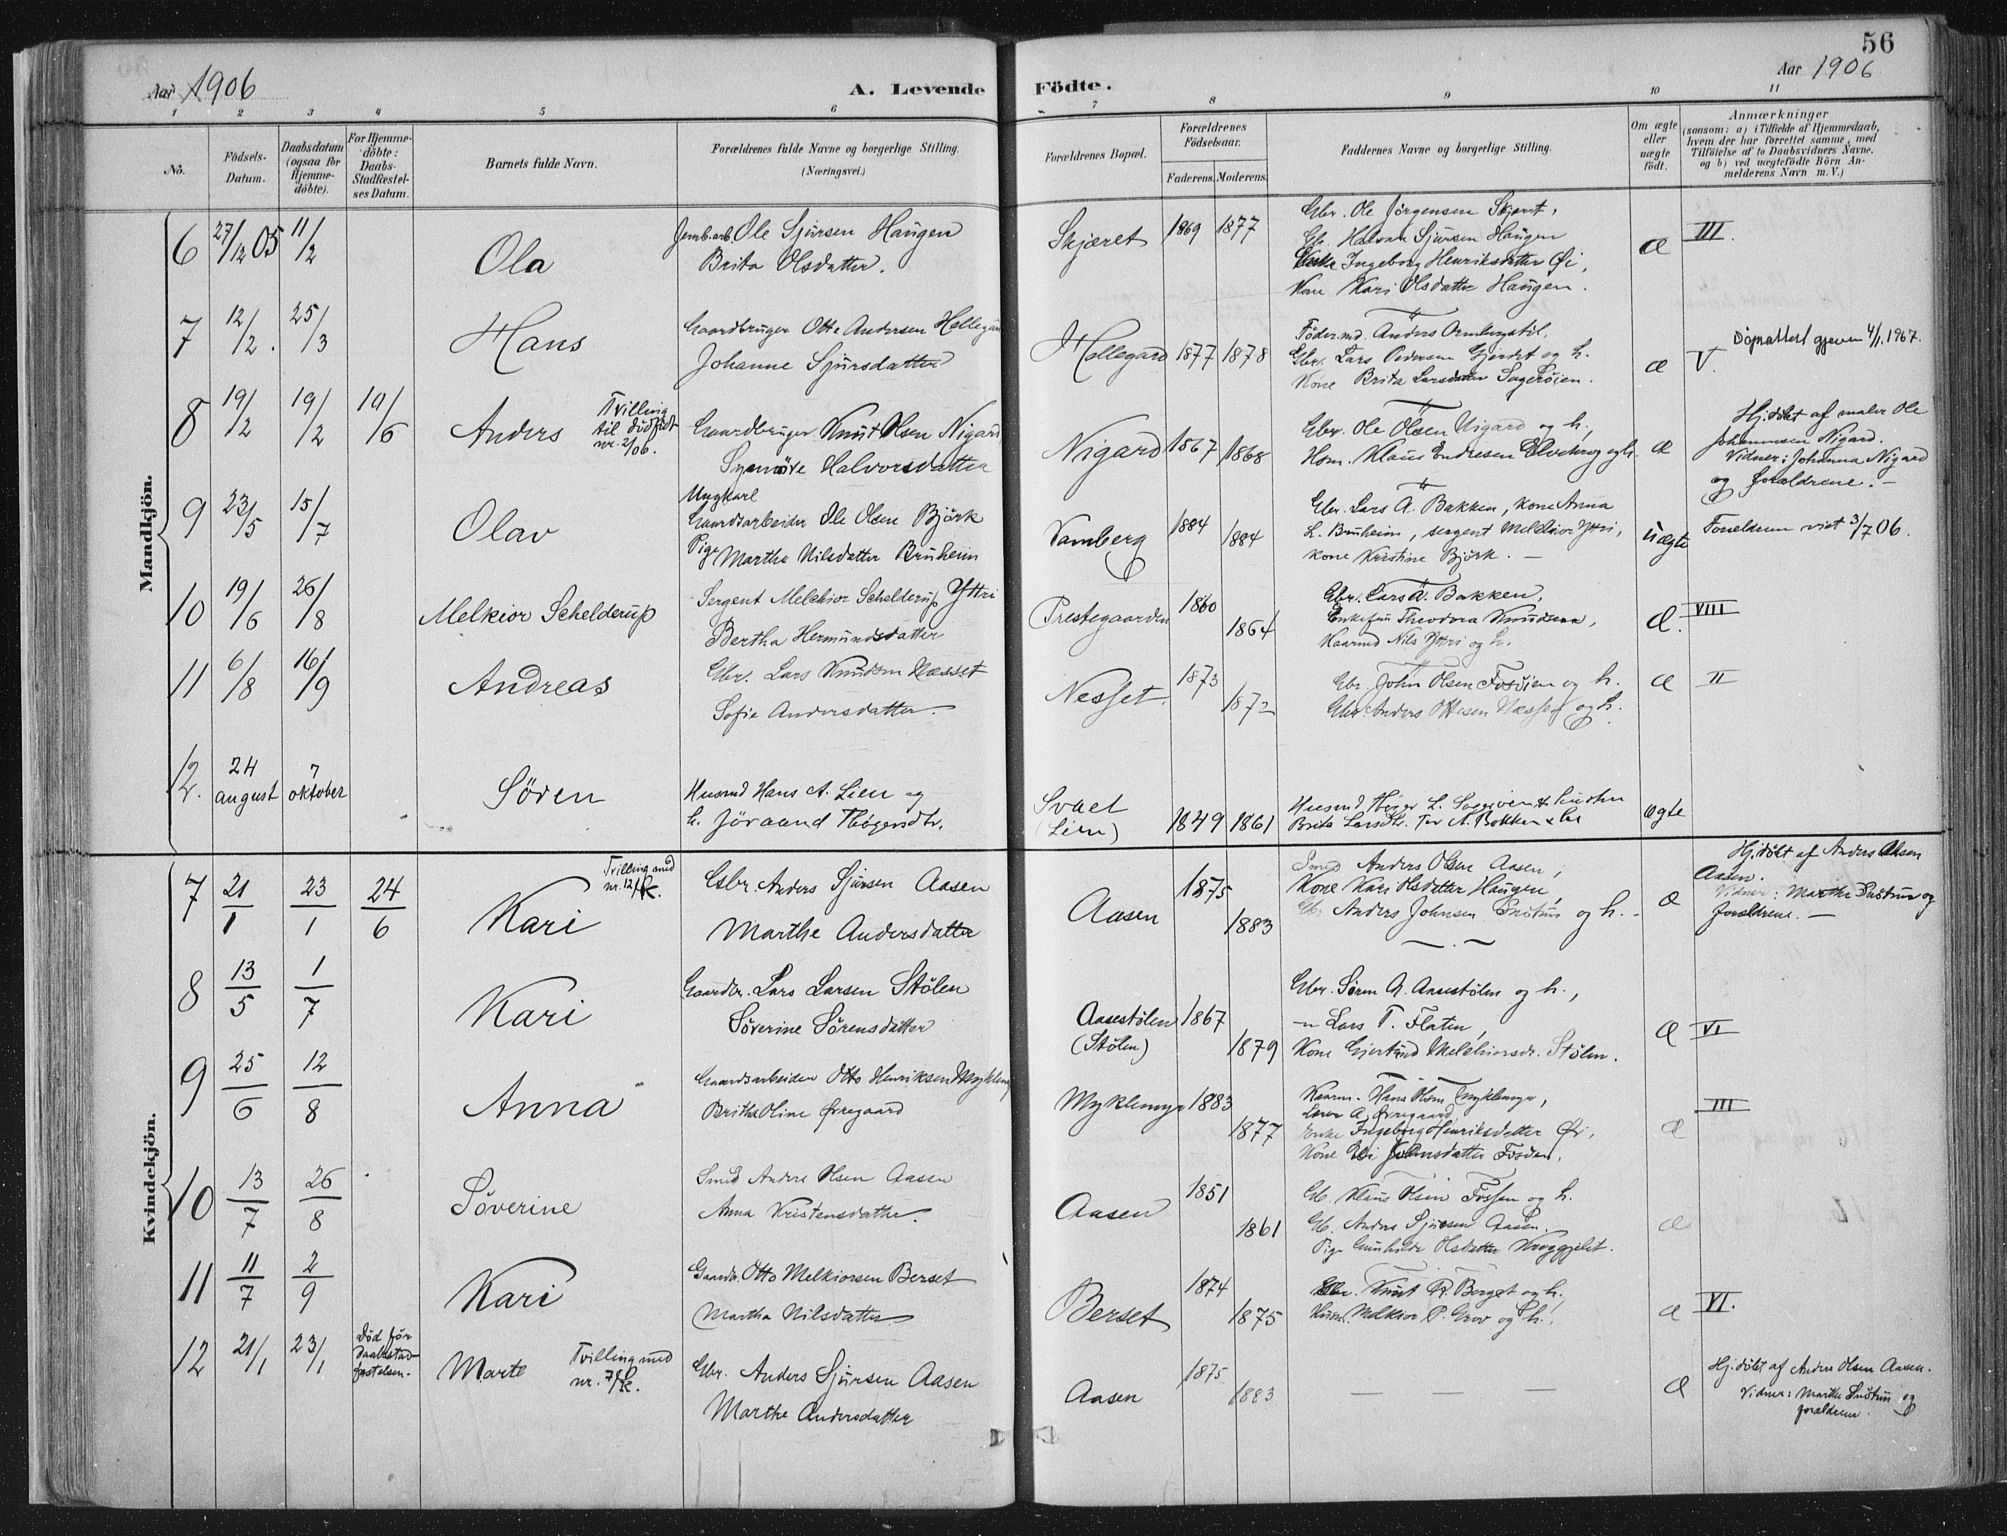 56
Aar 1906
A. Levende Födte.
Aar 1906
1 2 3 4 5 6 7 8 9 10 11
No.
Födsels-Datum.
Daabsdatum (ogsaa for Hjemme-döbte).
For Hjemme-döbte: Daabs-Stadfæstel-ses Datum.
Barnets fulde Navn.
Forældrenes fulde Navne og borgerlige Stilling.
(Næringsvei.)
Forældrenes Bopæl.
Forældrenes Födselsaar.
Faderens. Moderens.
Faddernes Navne og borgerlige Stilling.
Om ægte eller uægte født.
Anmærkninger
(saasom: a) i Tilfælde af Hjemmedaab,
hvem der har forrettet samme, med
Tilföielse af to Daabsvidners Navne,
og b) ved uægtefödte Börn An-
melderens Navn m. V.)
Mandkjön.
6 27/12 05 11/2 Ola
Jernb.arb. Ole Sjursen Haugen
Brita Olsdatter.
Skjæret 1869 1877
Gbr. Ole Jörgensen Skjæret,
Gb. Halvar Sjursen Haugen
Enke Ingeborg Henriksdatter Öi,
Kone Kari Olsdatter Haugen.
æ III
7 12/2. 25/3 Hans
Gaardbruger Otte Andersen Hellegård
Johanne Sjursdatter
Hellegård 1877 1878
Födermd. Anders Ormbergstöl,
Gbr. Lars Pedersen Gjerdet og h.
Kone Brita Larsdatter Sageröien.
æ V.
Döpeattest gjeven 4/1.1967.
8 19/2 19/2 10/6 Anders
Tvilling
til dödfödt
nr. 2/06.
Gaardbruger Knut Olsen Nigard
Synnöve Halvorsdatter
Nigard 1867 1868
Gbr. Ole Olsen Nigard og h.,
Hsm. Klaus Endresen Elvekrog og h.
æ
Hj.döbt af maler Ole
Johannesen Nigard.
Vidner: Johanna Nigard
og forældrene. -
9 23/5 15/7 Olav
Ungkarl
Gaardsarbeider Ole Olsen Björk
Pige Martha Nilsdatter Bruheim
Vamberg 1884 1884
Gbr. Lars A. Bakken, kone Anna
L. Bruheim, sergent Melkior Yttri,
kone Kristine Björk. -
uægte
Forældrene viet 3/7 06.
10 19/6 26/8 Melkior Schelderup
Sergent Melchior Schelderup Yttri
Bertha Hermundsdatter
Prestegaarden 1860 1864
Gbr. Lars A. Bakken,
Enkefru Theodora Knudsen,
Kaarmd Nils Yttri og h.
æ. VIII
11 6/8 16/9 Andreas
Gbr. Lars Knudsen Næsset
Sofie Andersdatter.
Nesset. 1873 1872
Gbr. John Olsen Fosöien og h.
Gbr Anders Ottesen Næsset og h.
æ II
12. 24 august 7 oktober Sören
Husmd Hans A. Lien og
h. Jöraand Thögersdtr.
Svaet
(Lien) 1849 1861
Brita Larsdtr.
ægte
Kvindekjön.
7 21/1 23/1 24/6 Kari
Tvilling med
nr. 12/k.
Gbr. Anders Sjursen Aasen
Marthe Andersdatter
Aasen 1875 1883
Smed Anders Olsen Aasen,
Kone Kari Olsdatter Haugen,
Gb. Anders Johnsen Snötun og h.
æ
Hj.döbt af Anders Olsen
Aasen.
Vidner: Marthe Snötun og
forældrene. -
8 13/5 1/7 Kari
Gaardbr. Lars Larsen Stölen
Söverine Sörensdatter
Aasestölen
(Stölen) 1867 1879
Gbr. Sören A. Aasestölen og h.,
-"- Lars T. Flaten,
Kone Gjertrud Melchiorsdr. Stölen.
æ VI
9 25/6 12/8 Anna
Gaardsarbeider Otto Henriksen Myklemyr
Britha Oline Övregaard
Myklemyr 1883 1877
Kaarm. Hans Olsen Myklemyr,
Lærer A. Övregaard,
Enke Ingeborg Henriksdatter Öi,
Kone Eli Johnsdatter Fosöen.
æ III
10 13/7 26/8 Söverine
Smed Anders Olsen Aasen
Anna Kristensdatter.
Aasen 1851 1861
Gb. Klaus Olsen Fossen og h.
Gb. Anders Sjursen Aasen.
Pige Gunhilde Olsdatter
æ
11 11/7 2/9 Kari
Gaardbr. Otto Melkiorsen Berset
Martha Nilsdatter
Berset 1874 1875
Gbr. Knut R. Berget og h.
Husm. Melkior P. Grov og h.
æ VI.
12 21/1 23/1
Död før
daabsstad-
fæstelsen.
Marte
Tvilling med
nr. 7/k.
Gbr. Anders Sjursen Aasen
Marthe Andersdatter
Aasen 1875 1883
— — — —
æ
Hj.döbt af Anders Olsen Aasen.
Vidner: Marthe Snötun og
forældrene.